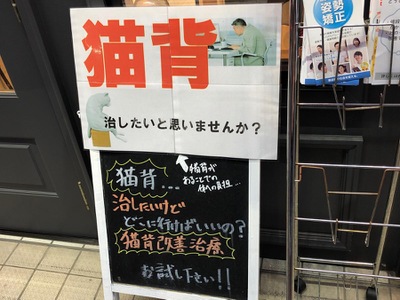 猫背
治したいと思いませんか?
猫背が
あることでの
体への負担…
猫背…
治したいけど
どこに行けばいいの?
猫背改善治療
お試し下さい!!
姿勢
矯正